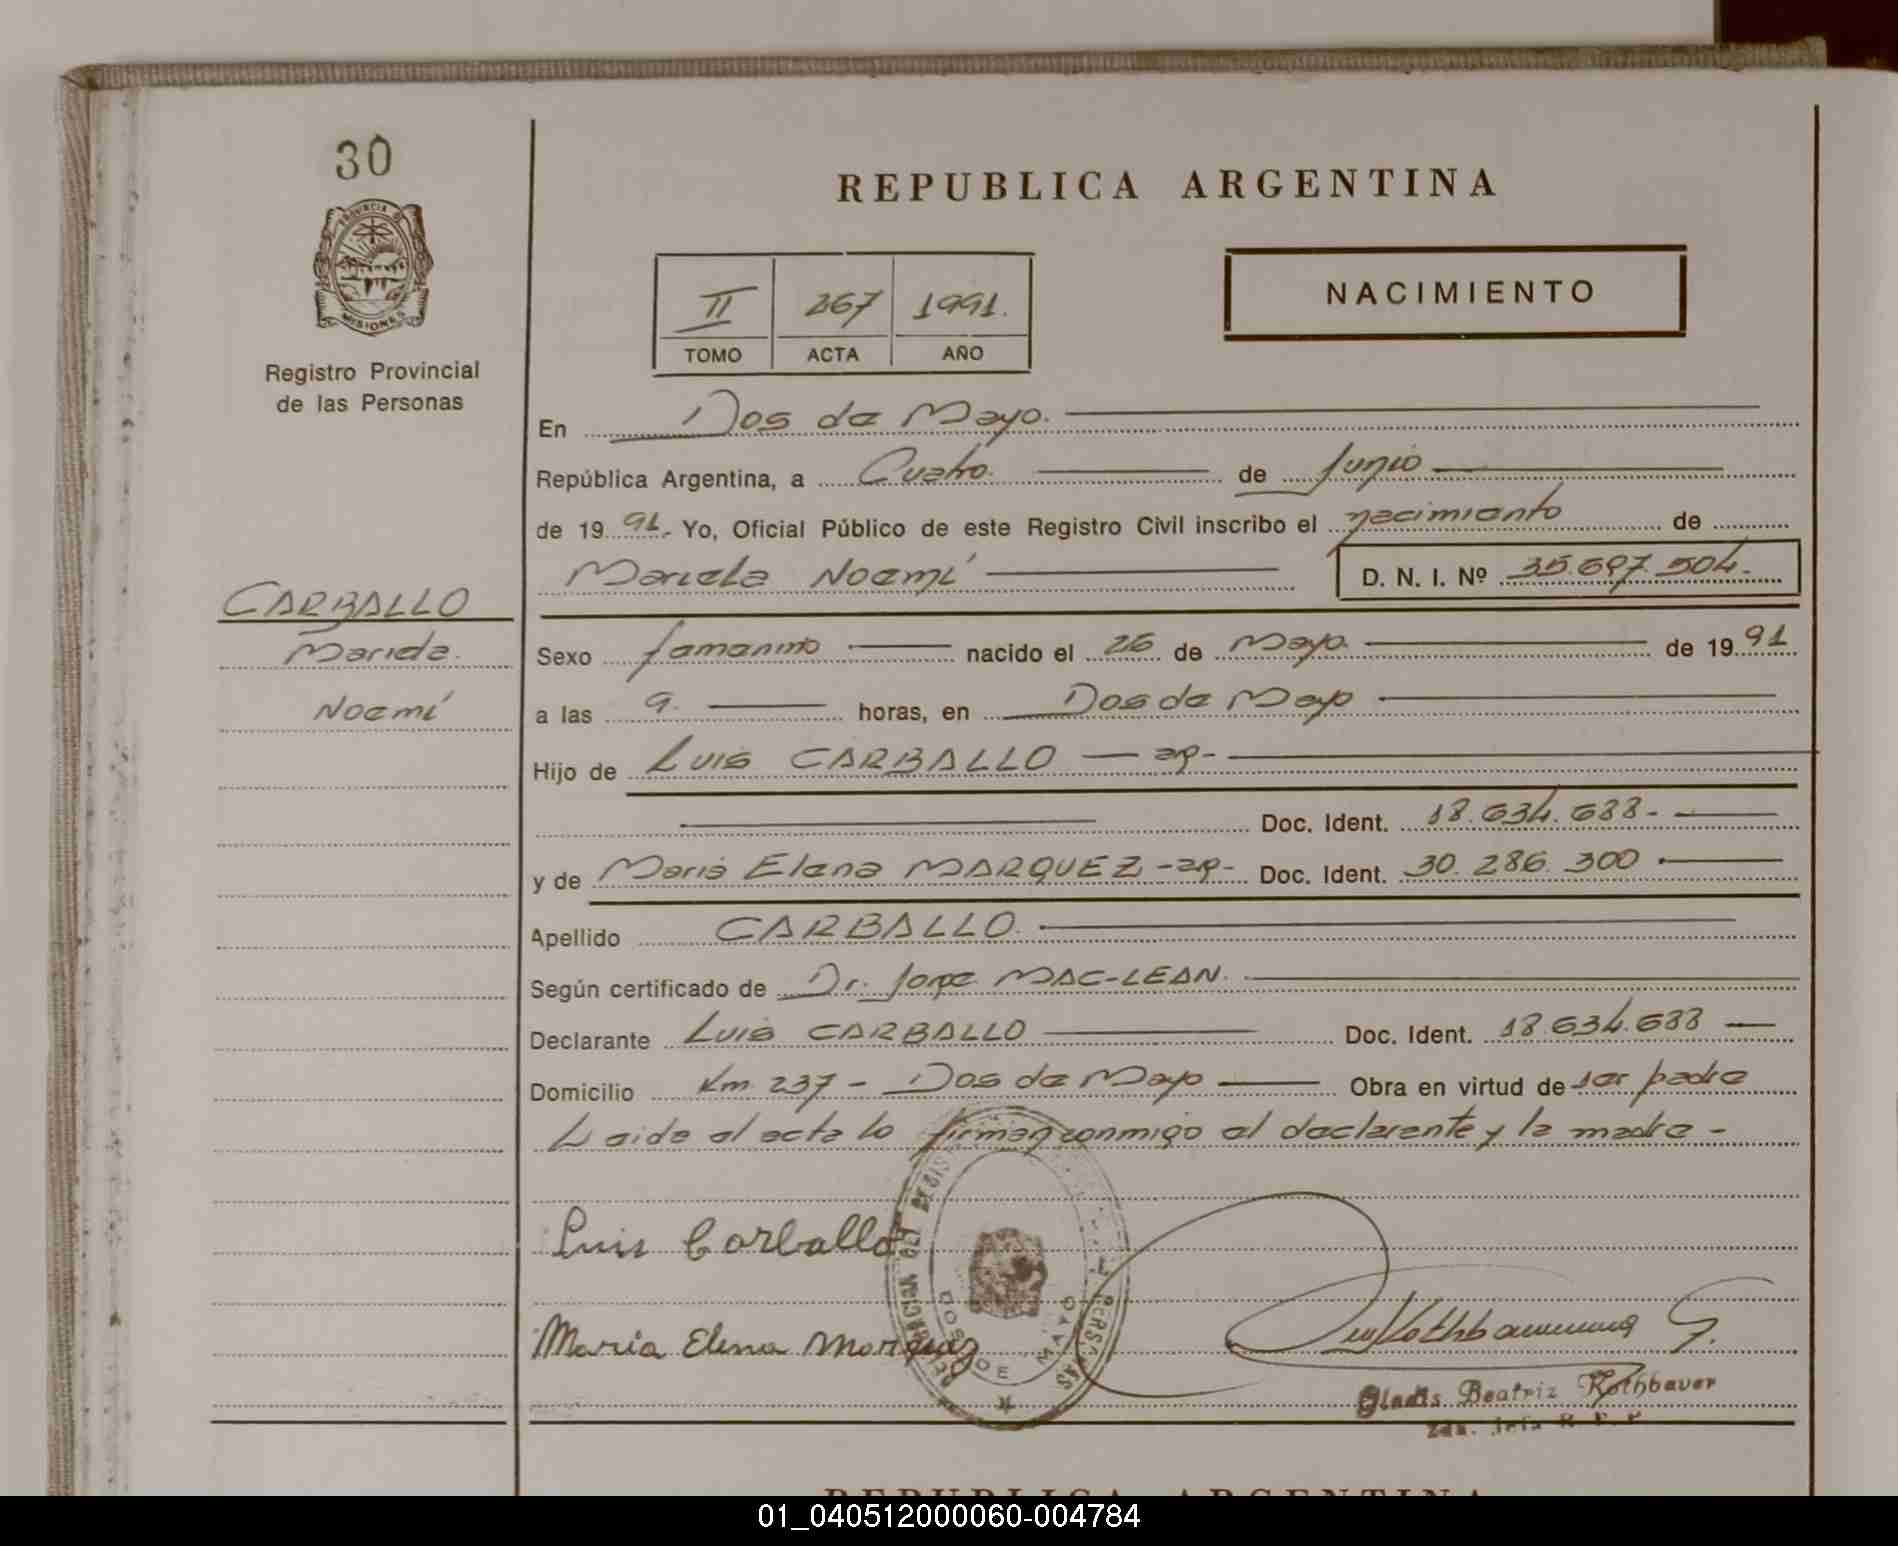 30
PROVINCIA DE
MISIONES
Registro Provincial
de las Personas
REPUBLICA ARGENTINA
II 267 1991.
TOMO ACTA AÑO
NACIMIENTO
En Dos de Mayo.
República Argentina, a Cuatro. de Junio
de 19 91.- Yo, Oficial Público de este Registro Civil inscribo el nacimiento de
Mariela Noemí D. N. I. Nº 35.697.504.-
CARBALLO
Mariela
Noemí
Sexo femenino nacido el 26 de Mayo de 19 91
a las 9. horas, en Dos de Mayo
Hijo de Luis CARBALLO — ar-
Doc. Ident. 18.634.683-
y de María Elena MARQUEZ -ar- Doc. Ident. 30.286.300
Apellido CARBALLO.
Según certificado de Dr. Jorge MAC-LEAN.
Declarante Luis CARBALLO Doc. Ident. 18.634.683
Domicilio Km. 237 - Dos de Mayo Obra en virtud de ser padre
Leida el acta lo firman conmigo el declarante y la madre -
Luis Carballo
María Elena Marquez
DOS DE MAYO
Rothbauer G.
Gladis Beatriz Rothbauer
REPUBLICA ARGENTINA
01_040512000060-004784